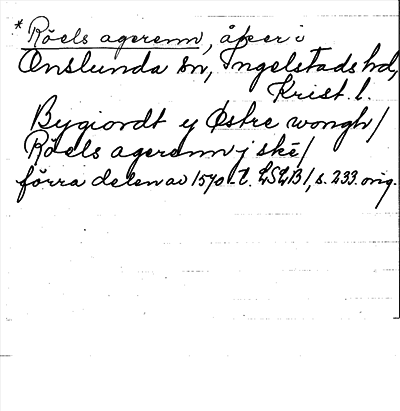 * Röels agerenn, åker i
Onslunda sn, Ingelstads hd,
Krist. l.
Bygiordt y Østre wongh/
Röels agerenn j skē/
förra delen av 1570-t. LSLB 1, s. 233. orig.